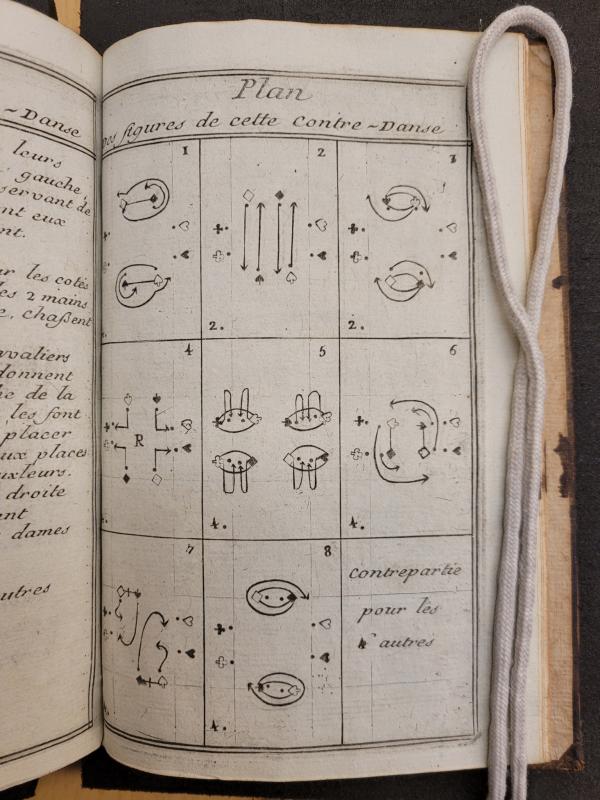 ~Danse
leurs
gauche,
servant de
nt eux
nt.
ur les cotés
les 2 mains
e, chaßent
valiers
donnent
he de la
les font
placer
ux places
uxleurs.
droite
ant
dames
autres
Plan
Des figures de cette Contre~Danse
1
2
2.
3
2.
4
R
5
4.
6
4.
7
8
4.
Contrepartie
pour les
4 autres